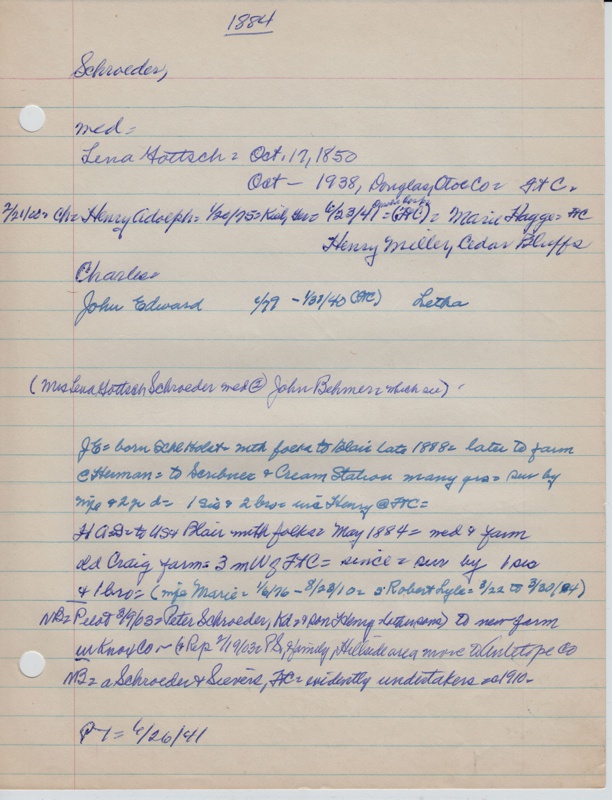 1884
Schroeder,
med =
Lena Gottsch = Oct. 17, 1850
Oct - 1938, Douglas, Otoe Co = FtC =
= Ch = Henry Adolph = 1/20/75 = = 6/23/41 = (FtC) = Marie Hagge = FtC
Henry Miller, Cedar Bluffs
Charles =
John Edward /79 - /40 (FtC) Letha
(Mrs Lena Gottsch Schroeder med ② John Behmer = which see)
JE = born Schl Holst - with folks to Blair late 1888 = later to farm
@ Herman = to Scribner & Cream Station many yrs = sur by
wife & 2 yr d = 1 sis & 2 bro = Henry @ FtC =
HAS = to US & Blair with folks = May 1884 = med & farm
old Craig farm = 3 mW of FtC = since = sur by 1 sis
& 1 bro = (wife Marie = 1/6/76 - 3/23/10 = s Robert Lyle = 3/22 to 3/30/)
NB = Pilot 3/9/03 = Peter Schroeder, & son Henry to new farm
in Knox Co - (& Rep 2/19/03 = PS, & family, Hillside area move to Co
NB = a Schroeder & Sievers, FtC = evidently undertakers 1910 -
PT = 6/26/41